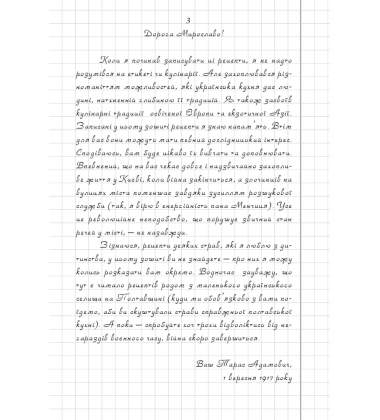 3
Дорога Мирославо!
Коли я починав записувати ці рецепти, я не надто
розумівся на етикеті чи кулінарії. Але захоплювався різ-
номаніттям можливостей, які українська кухня дає лю-
дині, натхненній глибиною її традицій. Як також засвоїв
кулінарні традиції освіченої Європи та екзотичної Азії.
Записані у цьому зошиті рецепти я знаю напам'ять. Втім
для вас вони можуть мати певний дослідницький інтерес.
Сподіваюсь, вам буде цікаво їх вивчати та доповнювати.
Впевнений, що на вас чекає довге і надзвичайно захопли-
ве життя у Києві, коли війна закінчиться, а злочинців на
вулицях міста поменшає завдяки зусиллям розшукової
служби (так, я вірю в енергійність пана Менчица). Усе
це революційне неподобство, що порушує звичний стан
речей у місті, — не назавжди.
Зізнаюся, рецепти деяких страв, які я люблю з ди-
тинства, у цьому зошиті ви не знайдете — про них я можу
колись розказати вам окремо. Водночас зауважу, що
тут є чимало рецептів родом з маленького українського
селища на Полтавщині (куди ми обов'язково з вами по-
їдемо, аби ви скуштували страви справжньої полтавської
кухні). А поки — спробуйте хоч трохи відволіктись від не-
гараздів воєнного часу, війна скоро завершиться.
Ваш Тарас Адамович,
1 вересня 1917 року